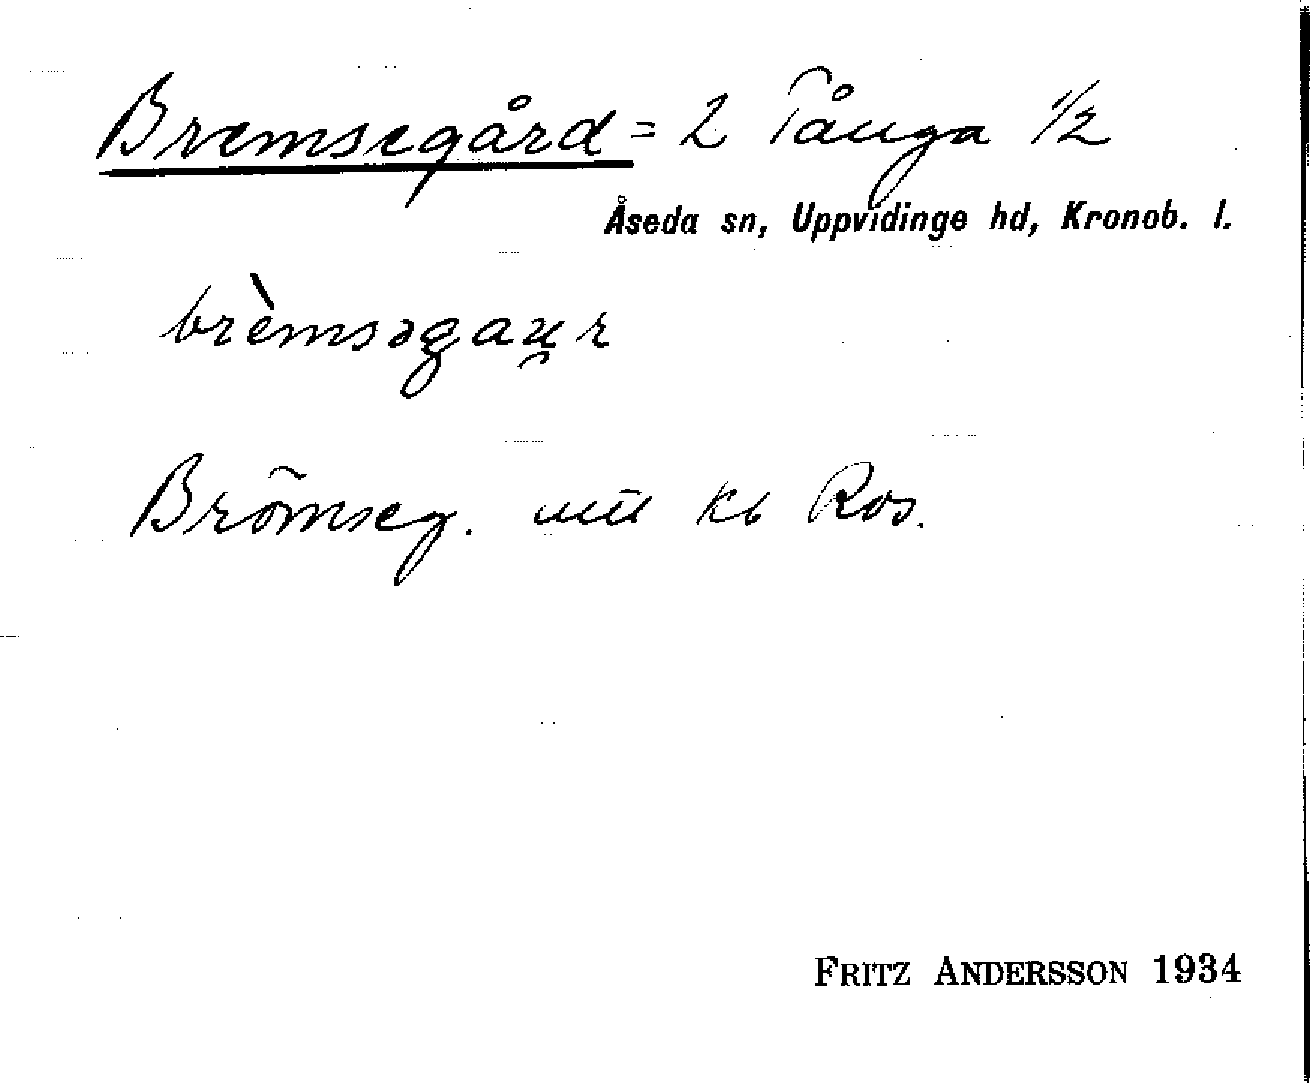 Bremsegård = 2 Tånga 1/2
Åseda sn, Uppvidinge hd, Kronob. l.
brèmsəgau̯r
Brömseg. utt kb Ros.
FRITZ ANDERSSON 1934